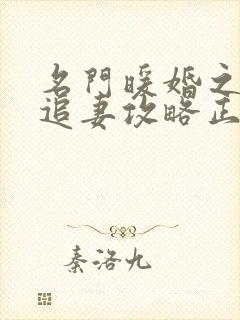 名門暖婚之
追妻攻略正
秦洛九